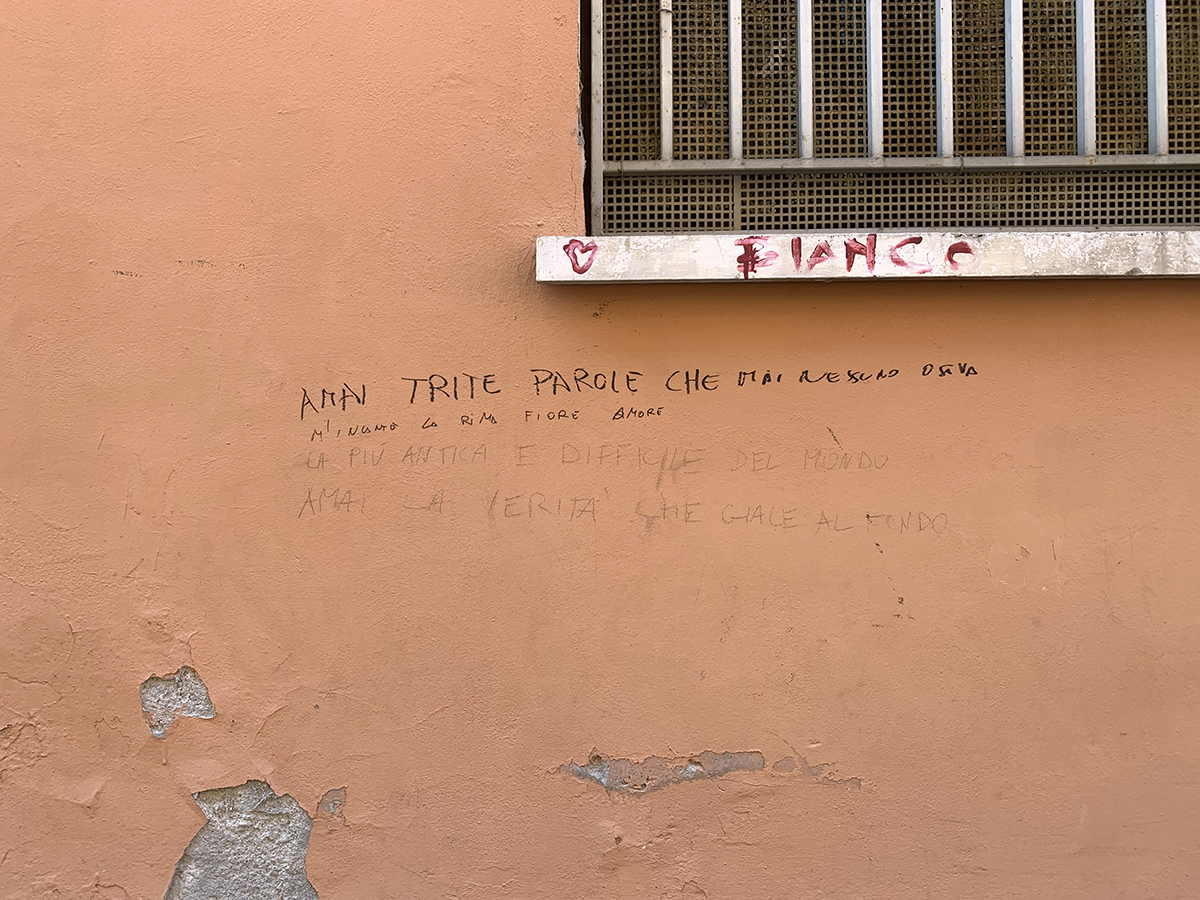 ♡ BIANCO
AMAI TRITE PAROLE CHE MAI NESSUNO OSAVA
M'INCANTÒ LA RIMA FIORE AMORE
LA PIÚ ANTICA E DIFFICILE DEL MONDO
AMAI LA VERITA' CHE GIALE AL FONDO